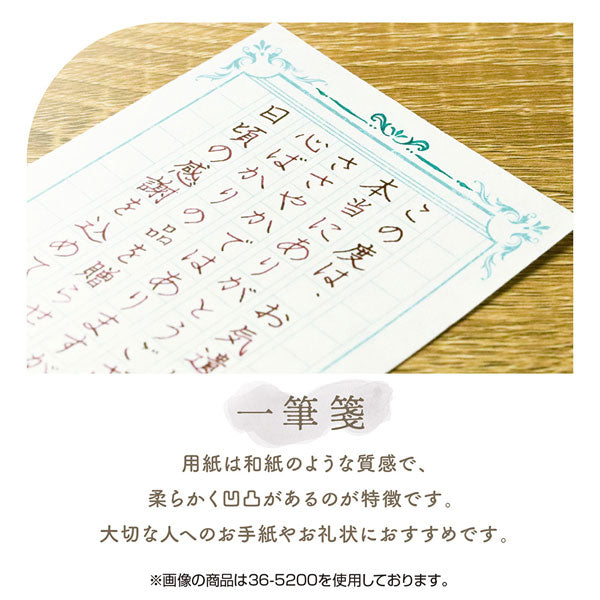 この度は、お気遣
本当にありがとうご
ささやかではありますが
心ばかりの品を贈らせ
日頃の感謝を込めて
一筆箋
用紙は和紙のような質感で、
柔らかく凹凸があるのが特徴です。
大切な人へのお手紙やお礼状におすすめです。
※画像の商品は36-5200を使用しております。